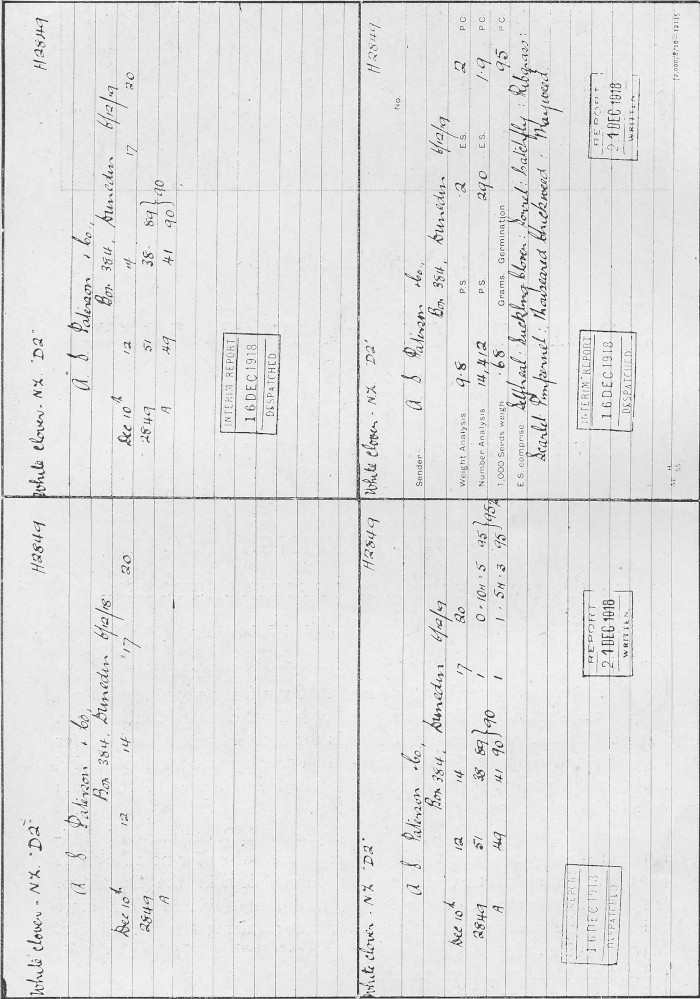 White Clover - N.Z. "D2" H2849
A S Paterson & Co,
Box 384, Dunedin 6/12/18
Dec 10th 12 14 17 20
2849
A
White Clover - N.Z. "D2" H2849
A. S Paterson & Co,
Box 384, Dunedin 6/12/19
Dec 10th 12 14 17 20
2849 51 38 89 } 90
A 49 41 90
INTERIM REPORT
16 DEC 1918
DESPATCHED
White Clover - N.Z. "D2" H2849
A S Paterson & Co,
Box 384, Dunedin 6/12/19
Dec 10th 12 14 17 20
2849 51 38 89 } 90 1 0 · 10H · 5 95 } 95%
A 49 41 90 1 1 · 5H · 3 95
INTERIM REPORT
16 DEC 1918
DESPATCHED
REPORT
21 DEC 1918
WRITTEN
White Clover - N.Z. "D2" H2849
No.
Sender A S Paterson & Co,
Box 384, Dunedin 6/12/19
Weight Analysis 9.8 P.S. .2 E.S. 2 P.C.
Number Analysis 14,412 P.S. 290 E.S. 1.9 P.C.
1,000 Seeds weigh .68 Grams. Germination 95 P.C.
E.S. comprise Selfheal: Suckling Clover: Sorrel: Catchfly: Ribgrass:
Scarlet Pimpernel: Mouseeared Chickweed. Mayweed.
INTERIM REPORT
16 DEC 1918
DESPATCHED
REPORT
21 DEC 1918
WRITTEN